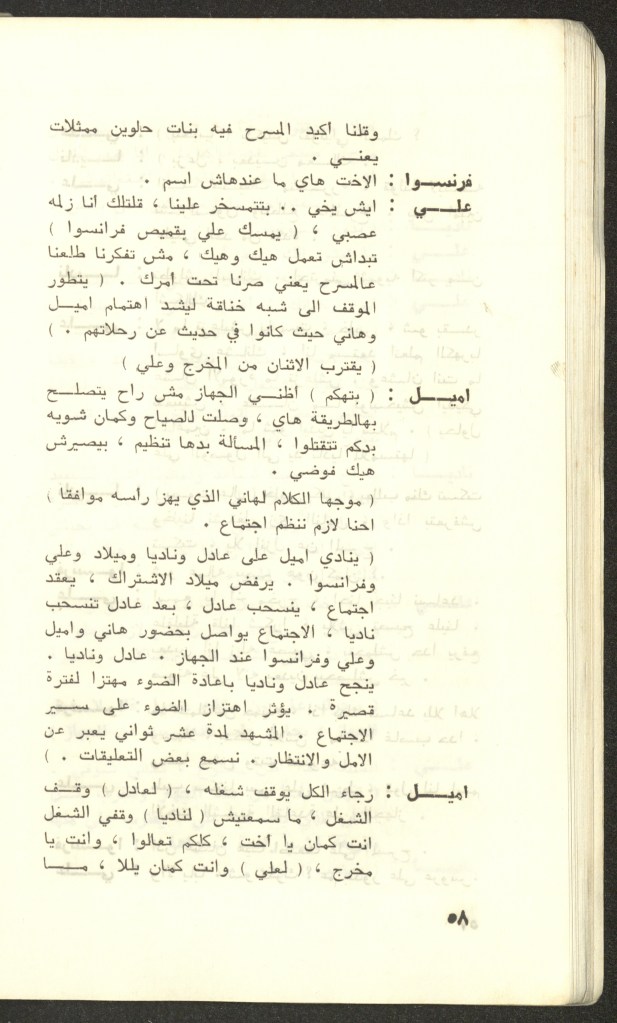 وقلنا اكيد المسرح فيه بنات حلوين ممثلات
يعنـــي .
فرنســـوا : الاخت هاي ما عندهاش اسم .
علـــــي : ايش يخي .. بتتمسخر علينا ، قلتلك انا زلمه
عصبي ، ( يمسك علي بقميص فرانسوا )
تبداش تعمل هيك وهيك ، مش تفكرنا طلعنا
عالمسرح يعني صرنا تحت امرك . ( يتطور
الموقف الى شبه خناقة ليشد اهتمام اميـل
وهاني حيث كانوا في حديث عن رحلاتهم . )
( يقترب الاثنان من المخرج وعلي )
اميـــــل : ( بتهكم ) أظنـي الجهاز مش راح يتصلـــح
بهالطريقة هاي ، وصلت للصياح وكمان شويه
بدكم تتقتلوا ، المسألة بدها تنظيم ، بيصيرش
هيك فوضي .
( موجها الكلام لهاني الذي يهز رأسه موافقا )
احنا لازم ننظم اجتماع .
( ينادي اميل على عادل وناديا وميلاد وعلي
وفرانسوا . يرفض ميلاد الاشتراك ، يعقد
اجتماع ، ينسحب عادل ، بعد عادل تنسحب
ناديا ، الاجتماع يواصل بحضور هاني واميل
وعلي وفرانسوا عند الجهاز . عادل وناديا .
ينجح عادل وناديا باعادة الضوء مهتزا لفترة
قصيرة . يؤثر اهتزاز الضوء على ســـير
الاجتماع . المشهد لمدة عشر ثواني يعبر عن
الامل والانتظار . نسمع بعض التعليقات . )
اميـــــل : رجاء الكل يوقف شغله ، ( لعادل ) وقــف
الشغل ، ما سمعتيش ( لناديا ) وقفي الشغل
انت كمان يا أخت ، كلكم تعالوا ، وانت يا
مخرج ، ( لعلي ) وانت كمان يللا ، مـــــا
٥٨